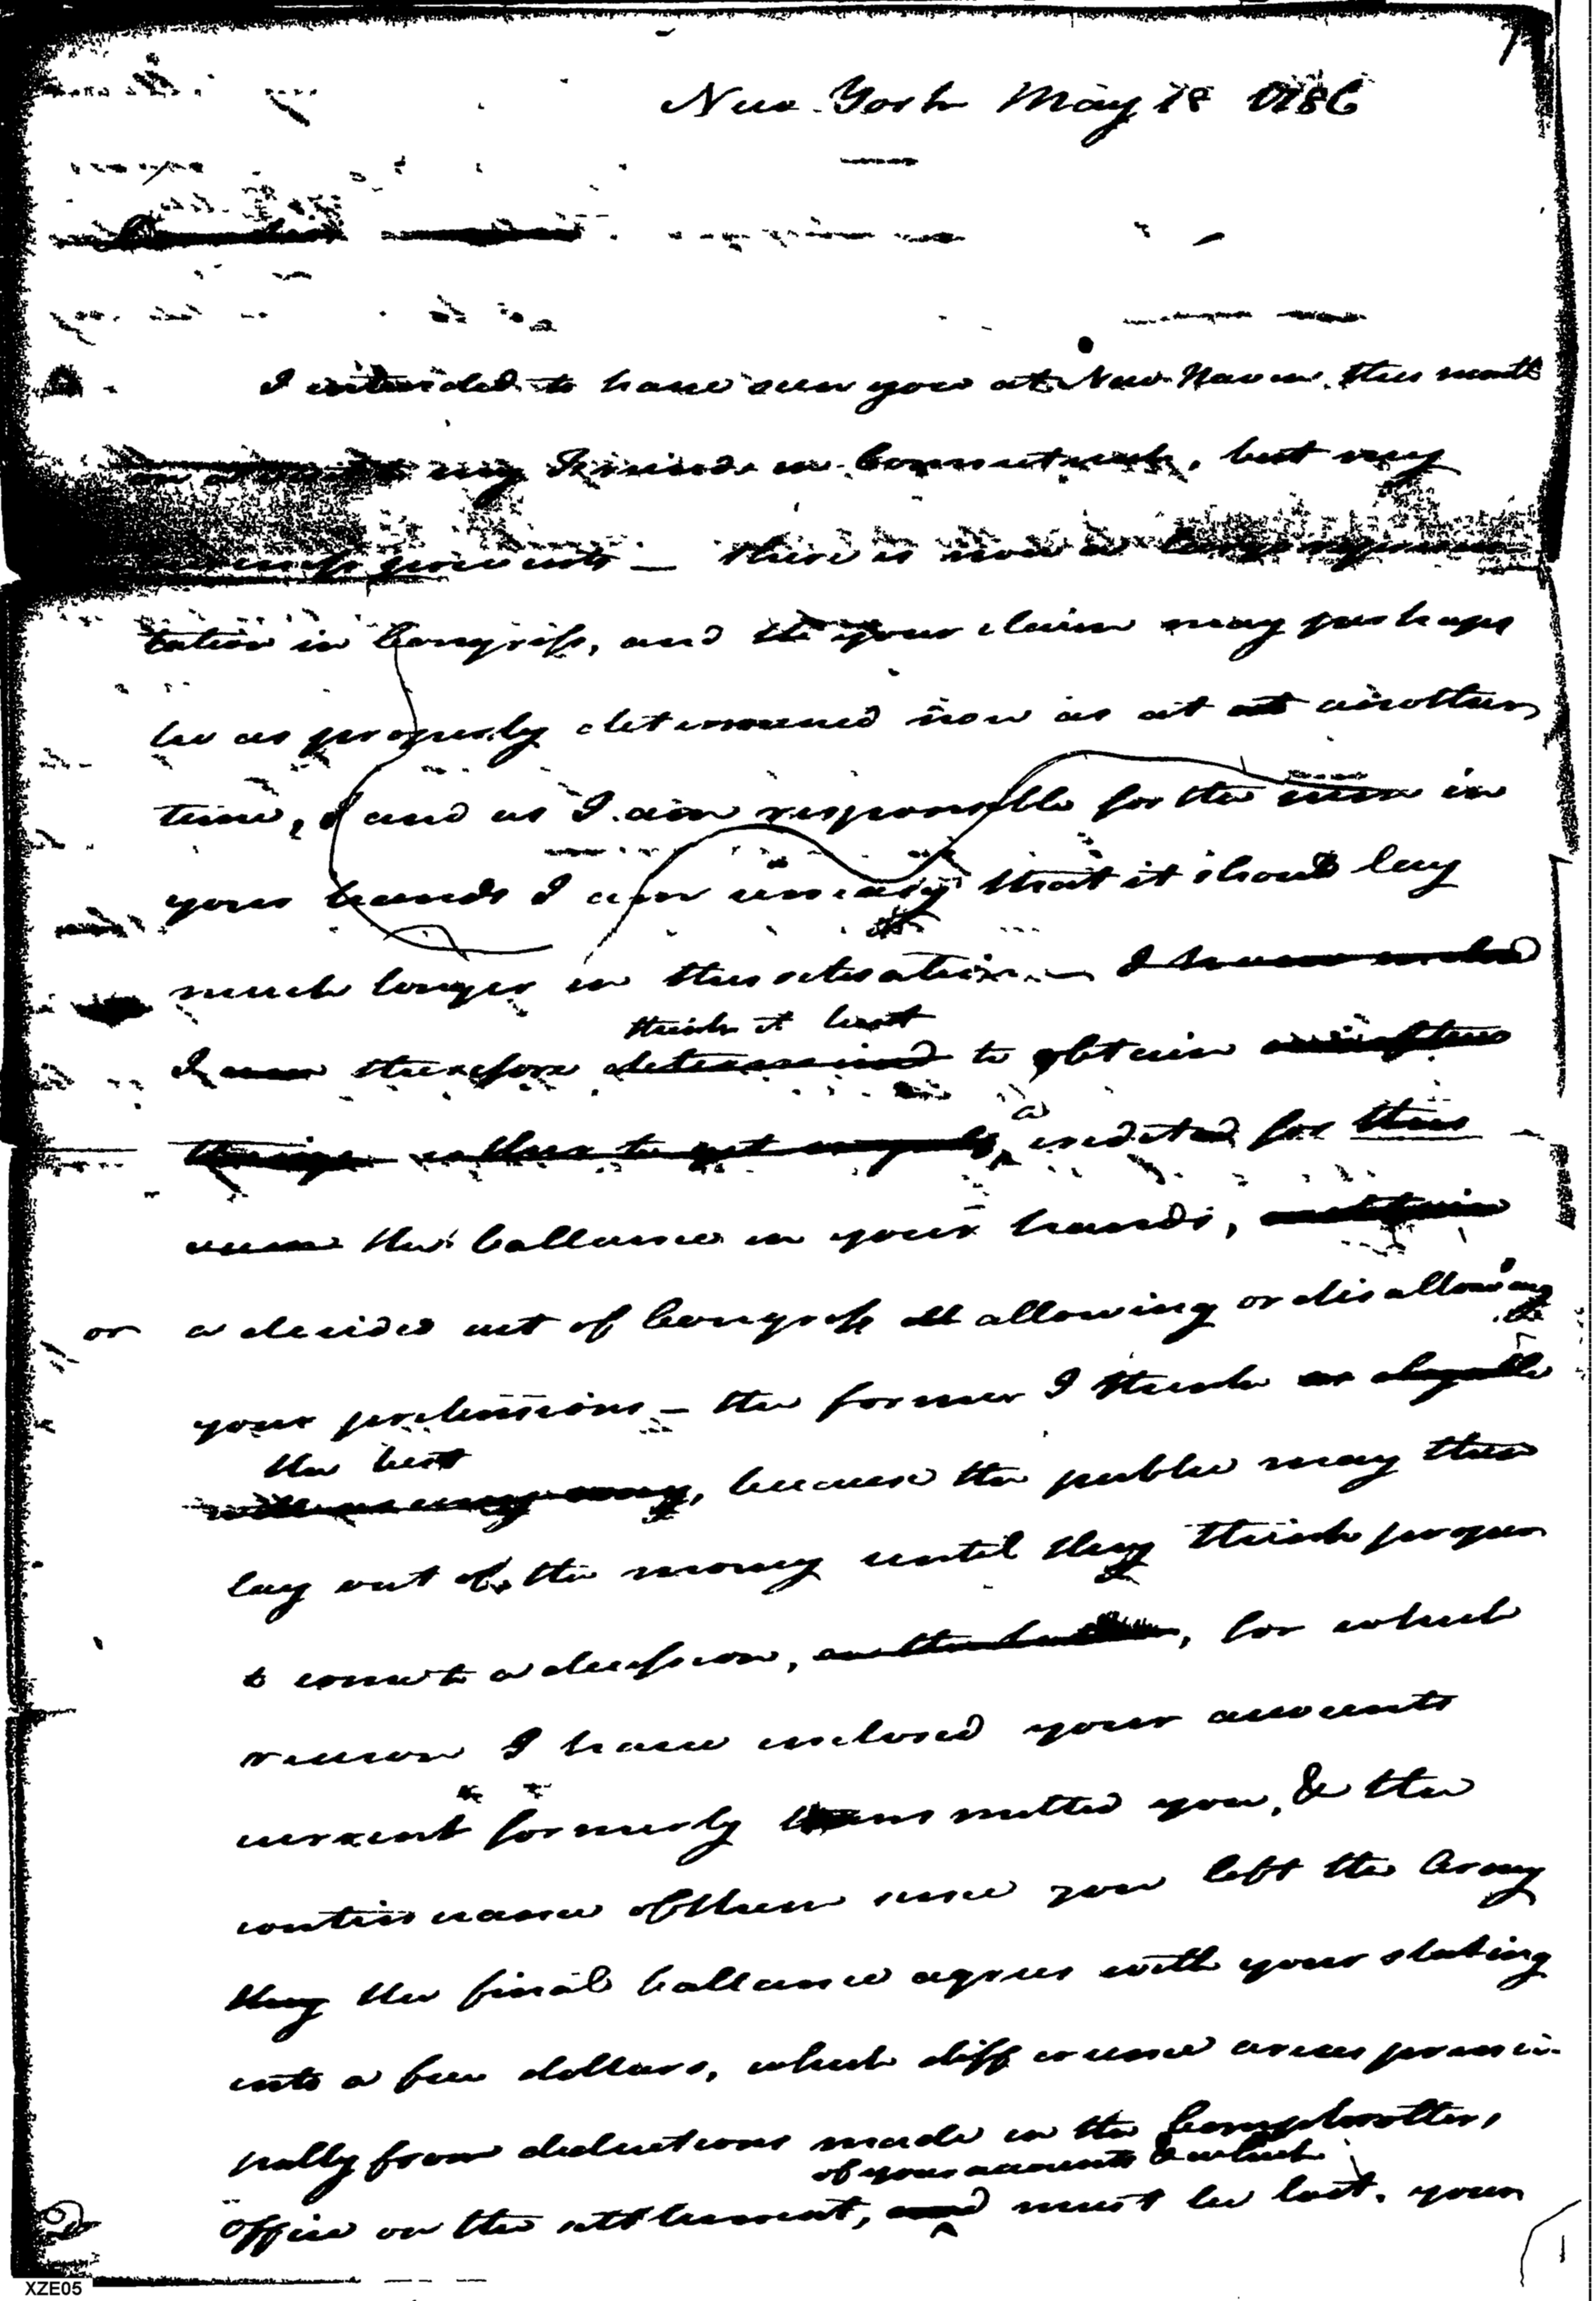 New York May 18 1786
I intended to have seen you at New Haven this month
on a visit to my Friends in Connecticut, but my
business prevents — there is now a large represen
tation in Congress, and the your claim may perhaps
be as properly determined now as at at another
time, I and as I am responsible for the sum in
your hands I am uneasy that it should lay
much longer in this situation — I have
think it best
I am therefore determined to obtain
to get myself, a credited for this
sum the ballance in your hands,
or a decided act of Congress allowing or disallowing
your pretensions — the former I think as eligible
the best
, because the public may then
lay out of the money until they think proper
to come to a decission, , for which
reason I have enclosed your accounts
current formerly transmitted you, & the
continuance of them since you left the Army
they the final ballance agrees with your stating
into a few dollars, which difference arises princi-
pally from deductions made in the Comptrollers,
of your accounts & which
Office on the settlement, and must be lost. your
1
XZE05